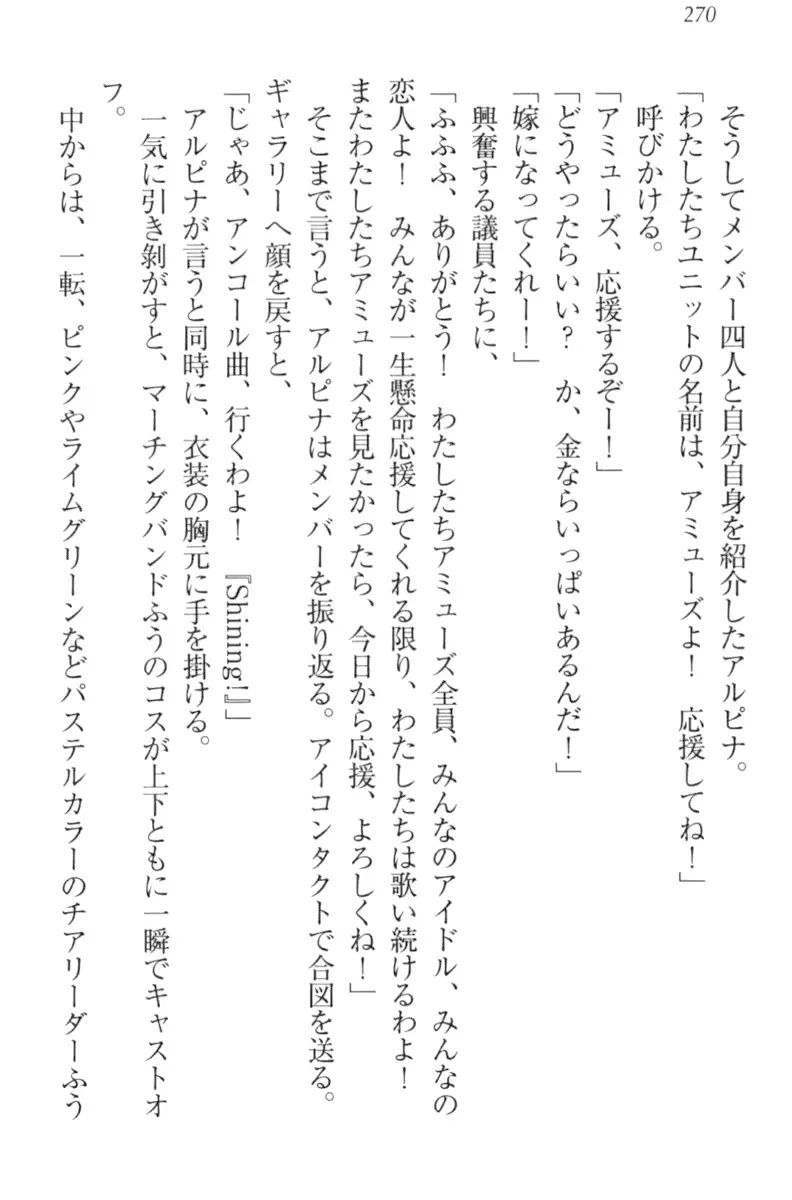 270
そうしてメンバー四人と自分自身を紹介したアルピナ。
「わたしたちユニットの名前は、アミューズよ！　応援してね！」
呼びかける。
「アミューズ、応援するぞー！」
「どうやったらいい？　か、金ならいっぱいあるんだ！」
「嫁になってくれー！」
興奮する議員たちに、
「ふふふ、ありがとう！　わたしたちアミューズ全員、みんなのアイドル、みんなの
恋人よ！　みんなが一生懸命応援してくれる限り、わたしたちは歌い続けるわよ！
またわたしたちアミューズを見たかったら、今日から応援、よろしくね！」
そこまで言うと、アルピナはメンバーを振り返る。アイコンタクトで合図を送る。
ギャラリーへ顔を戻すと、
「じゃあ、アンコール曲、行くわよ！　『Shining!』」
アルピナが言うと同時に、衣装の胸元に手を掛ける。
一気に引き剝がすと、マーチングバンドふうのコスが上下ともに一瞬でキャストオ
フ。
中からは、一転、ピンクやライムグリーンなどパステルカラーのチアリーダーふう